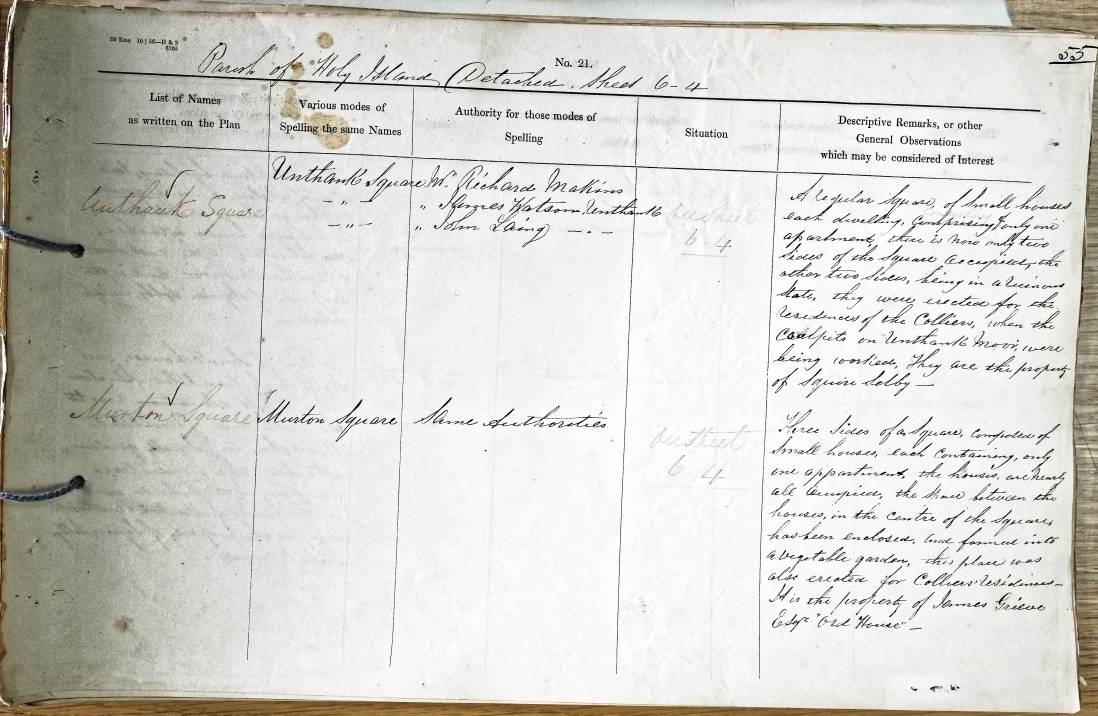 55
No. 21.
Parish of Holy Island (Detached. Sheet 6-4
List of Names
as written on the Plan
Various modes of
Spelling the same Names
Authority for those modes of
Spelling
Situation
Descriptive Remarks, or other
General Observations
which may be considered of Interest
Unthank Square
Unthank Square
- " -
- " -
Mr. Richard Makins
" James Watson Unthank
" John Laing - " -
See Sheet
6 4
A regular Square, of Small houses
each dwelling, Comprising only one
apartment, there is now only two
Sides of the Square occupied, the
other two Sides, being in a ruinous
State, they were erected for the
residences of the Colliers, when the
Coalpits on Unthank Moor, were
being worked, They are the property
of Squire Selby —
Murton Square
Murton Square
Same Authorities
See Sheet
6 4
Three Sides of a Square, Composed of
Small houses, each Containing, only
one appartment, the houses, are nearly
all occupied, the space between the
houses, in the Centre of the Square,
has been enclosed, and formed into
a vegetable garden, this place was
also erected for Colliers' residences —
It is the property of James Grieve
Esqr "Ord House" —